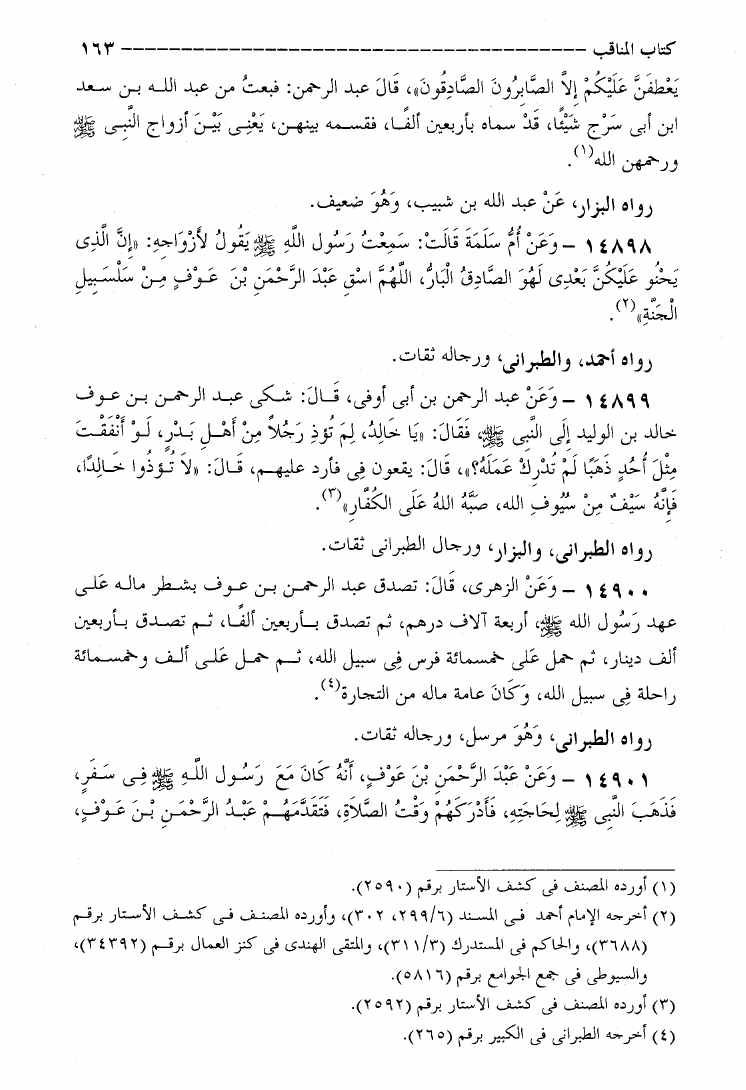 كتاب المناقب ------------------------------------ ١٦٣
يَعْطفَنَّ عَلَيْكُمْ إِلاَّ الصَّابِرُونَ الصَّادِقُونَ»، قَالَ عبد الرحمن: فبعتُ من عبد الله بن سعد
ابن أبى سَرْج شَيْئًا، قَدْ سماه بأربعين ألفًا، فقسمه بينهن، يَعْنِى بَيْنَ أزواج النَّبِى ﷺ
ورحمهن الله(١).
رواه البزار، عَنْ عبد الله بن شبيب، وَهُوَ ضعيف.
١٤٨٩٨ - وَعَنْ أُمِّ سَلَمَةَ قَالَتْ: سَمِعْتُ رَسُول اللَّهِ ﷺ يَقُولُ لأَزْوَاجِهِ: «إِنَّ الَّذِى
يَحْنُو عَلَيْكُنَّ بَعْدِى لَهُوَ الصَّادِقُ الْبَارُّ، اللَّهُمَّ اسْقِ عَبْدَ الرَّحْمَنِ بْنَ عَوْفٍ مِنْ سَلْسَبِيلِ
الْجَنَّةِ»(٢).
رواه أحمد، والطبرانى، ورجاله ثقات.
١٤٨٩٩ - وَعَنْ عبد الرحمن بن أبى أوفى، قَالَ: شكى عبد الرحمن بن عوف
خالد بن الوليد إِلَى النَّبِى ﷺ، فقَالَ: «يَا خَالِدُ، لِمَ تُؤذِ رَجُلاً مِنْ أَهْلِ بَدْرٍ، لَوْ أَنْفَقْتَ
مِثْلَ أُحُدٍ ذَهَبًا لَمْ تُدْرِكْ عَمَلَهُ؟»، قَالَ: يقعون فِى فأرد عليهم، قَالَ: «لاَ تُؤذُوا خَالِدًا،
فَإِنَّهُ سَيْفٌ مِنْ سُيُوفِ الله، صَبَّهُ اللهُ عَلَى الكُفَّارِ»(٣).
رواه الطبرانى، والبزار، ورجال الطبرانى ثقات.
١٤٩٠٠ - وَعَنْ الزهرى، قَالَ: تصدق عبد الرحمن بن عوف بشطر ماله عَلَى
عهد رَسُول الله ﷺ، أربعة آلاف درهم، ثم تصدق بأربعين ألفًا، ثم تصدق بأربعين
ألف دينار، ثم حمل عَلَى خمسمائة فرس فِى سبيل الله، ثم حمل عَلَى ألف وخمسمائة
راحلة فِى سبيل الله، وَكَانَ عامة ماله من التجارة(٤).
رواه الطبرانى، وَهُوَ مرسل، ورجاله ثقات.
١٤٩٠١ - وَعَنْ عَبْدَ الرَّحْمَنِ بْنَ عَوْفٍ، أَنَّهُ كَانَ مَعَ رَسُول اللَّهِ ﷺ فِى سَفَرٍ،
فَذَهَبَ النَّبِى ﷺ لِحَاجَتِهِ، فَأَدْرَكَهُمْ وَقْتُ الصَّلاَةِ، فَتَقَدَّمَهُمْ عَبْدُ الرَّحْمَنِ بْنَ عَوْفٍ،
(١) أورده المصنف فى كشف الأستار برقم (٢٥٩٠).
(٢) أخرجه الإمام أحمد فى المسند (٢٩٩/٦، ٣٠٢)، وأورده المصنف فى كشف الأستار برقم
(٣٦٨٨)، والحاكم فى المستدرك (٣١١/٣)، والمتقى الهندى فى كنز العمال برقم (٣٤٣٩٢)،
والسيوطى فى جمع الجوامع برقم (٥٨١٦).
(٣) أورده المصنف فى كشف الأستار برقم (٢٥٩٢).
(٤) أخرجه الطبرانى فى الكبير برقم (٢٦٥).